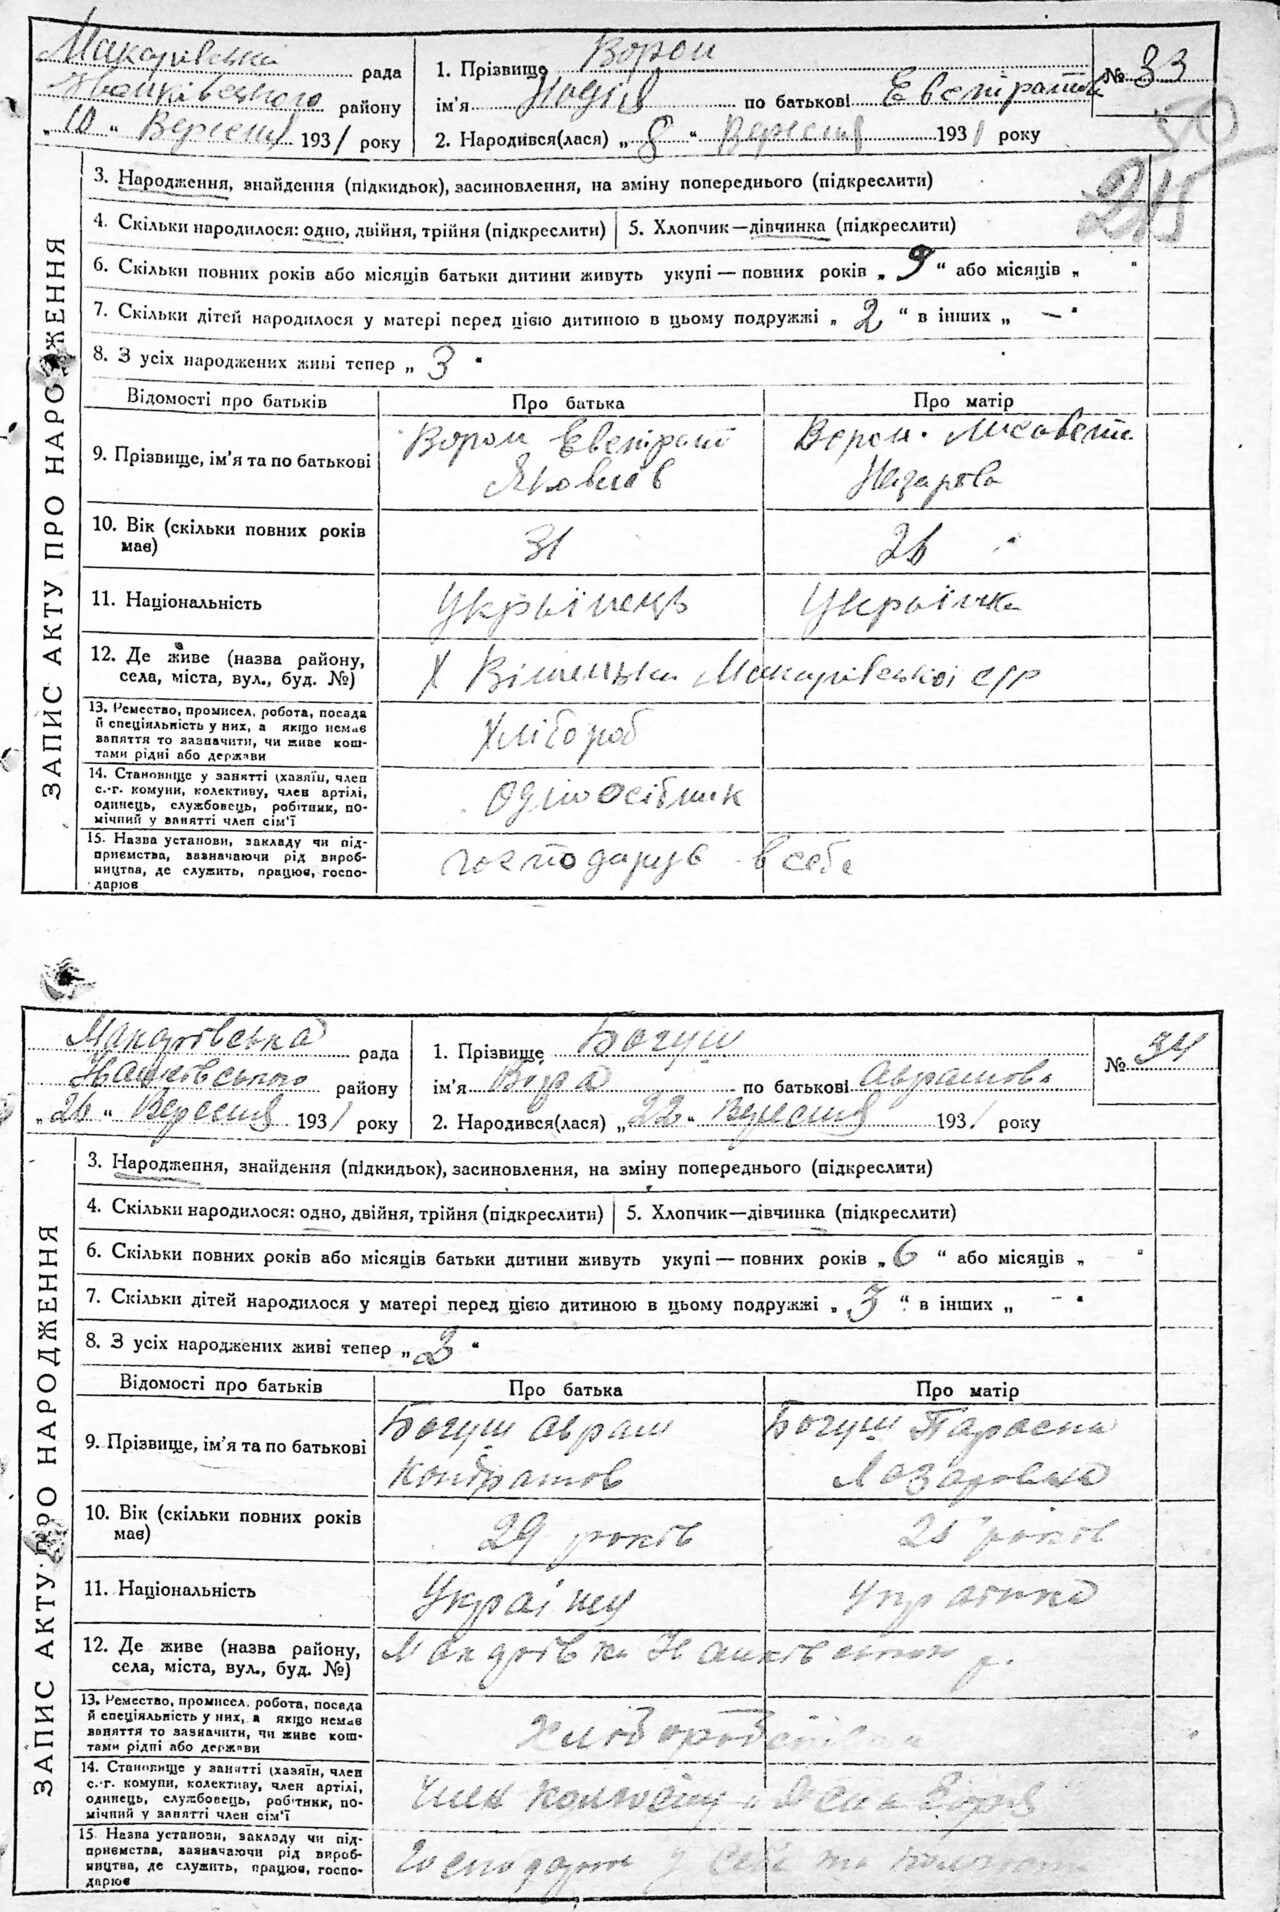 Макарівська рада
Іванківського району
„10“ Вересня 1931 року
1. Прізвище Ворон
ім'я Надія по батькові Евстратов
2. Народився(лася) „8“ Вересня 1931 року
№ 33
50
215
ЗАПИС АКТУ ПРО НАРОДЖЕННЯ
3. Народження, знайдення (підкидьок), засиновлення, на зміну попереднього (підкреслити)
4. Скільки народилося: одно, двійня, трійня (підкреслити) 5. Хлопчик—дівчинка (підкреслити)
6. Скільки повних років або місяців батьки дитини живуть укупі — повних років „9“ або місяців „ “
7. Скільки дітей народилося у матері перед цією дитиною в цьому подружжі „2“ в інших „—“
8. З усіх народжених живі тепер „3“
Відомості про батьків Про батька Про матір
9. Прізвище, ім'я та по батькові
Ворон Евстрат
Яковлев
Ворон Лисавета
Назарова
10. Вік (скільки повних років
має)
31 26
11. Національність Українець Українка
12. Де живе (назва району,
села, міста, вул., буд. №)
Х Макарівської с/р
13. Ремество, промисел, робота, посада
й спеціяльність у них, а якщо немає
заняття то зазначити, чи живе кош-
тами рідні або держави
Хлібороб
14. Становище у занятті (хазяїн, член
с.-г. комуни, колективу, член артілі,
одинець, службовець, робітник, по-
мічний у занятті член сім'ї
Одноосібник
15. Назва установи, закладу чи під-
приємства, зазначаючи рід вироб-
ництва, де служить, працює, госпо-
дарює
господарує в себе
Макарівська рада
Іванківського району
„26“ Вересня 1931 року
1. Прізвище Богуш
ім'я Віра по батькові Аврамова
2. Народився(лася) „22“ Вересня 1931 року
№ 34
ЗАПИС АКТУ ПРО НАРОДЖЕННЯ
3. Народження, знайдення (підкидьок), засиновлення, на зміну попереднього (підкреслити)
4. Скільки народилося: одно, двійня, трійня (підкреслити) 5. Хлопчик—дівчинка (підкреслити)
6. Скільки повних років або місяців батьки дитини живуть укупі — повних років „6“ або місяців „ “
7. Скільки дітей народилося у матері перед цією дитиною в цьому подружжі „3“ в інших „—“
8. З усіх народжених живі тепер „2“
Відомості про батьків Про батька Про матір
9. Прізвище, ім'я та по батькові
Богуш Аврам
Кондратов
Богуш Параска
Лазаровна
10. Вік (скільки повних років
має)
29 років 25 років
11. Національність Украінец Украінка
12. Де живе (назва району,
села, міста, вул., буд. №)
Макарівка Іванківського р.
13. Ремество, промисел, робота, посада
й спеціяльність у них, а якщо немає
заняття то зазначити, чи живе кош-
тами рідні або держави
14. Становище у занятті (хазяїн, член
с.-г. комуни, колективу, член артілі,
одинець, службовець, робітник, по-
мічний у занятті член сім'ї
Член колгоспу
15. Назва установи, закладу чи під-
приємства, зазначаючи рід вироб-
ництва, де служить, працює, госпо-
дарює
у себе та